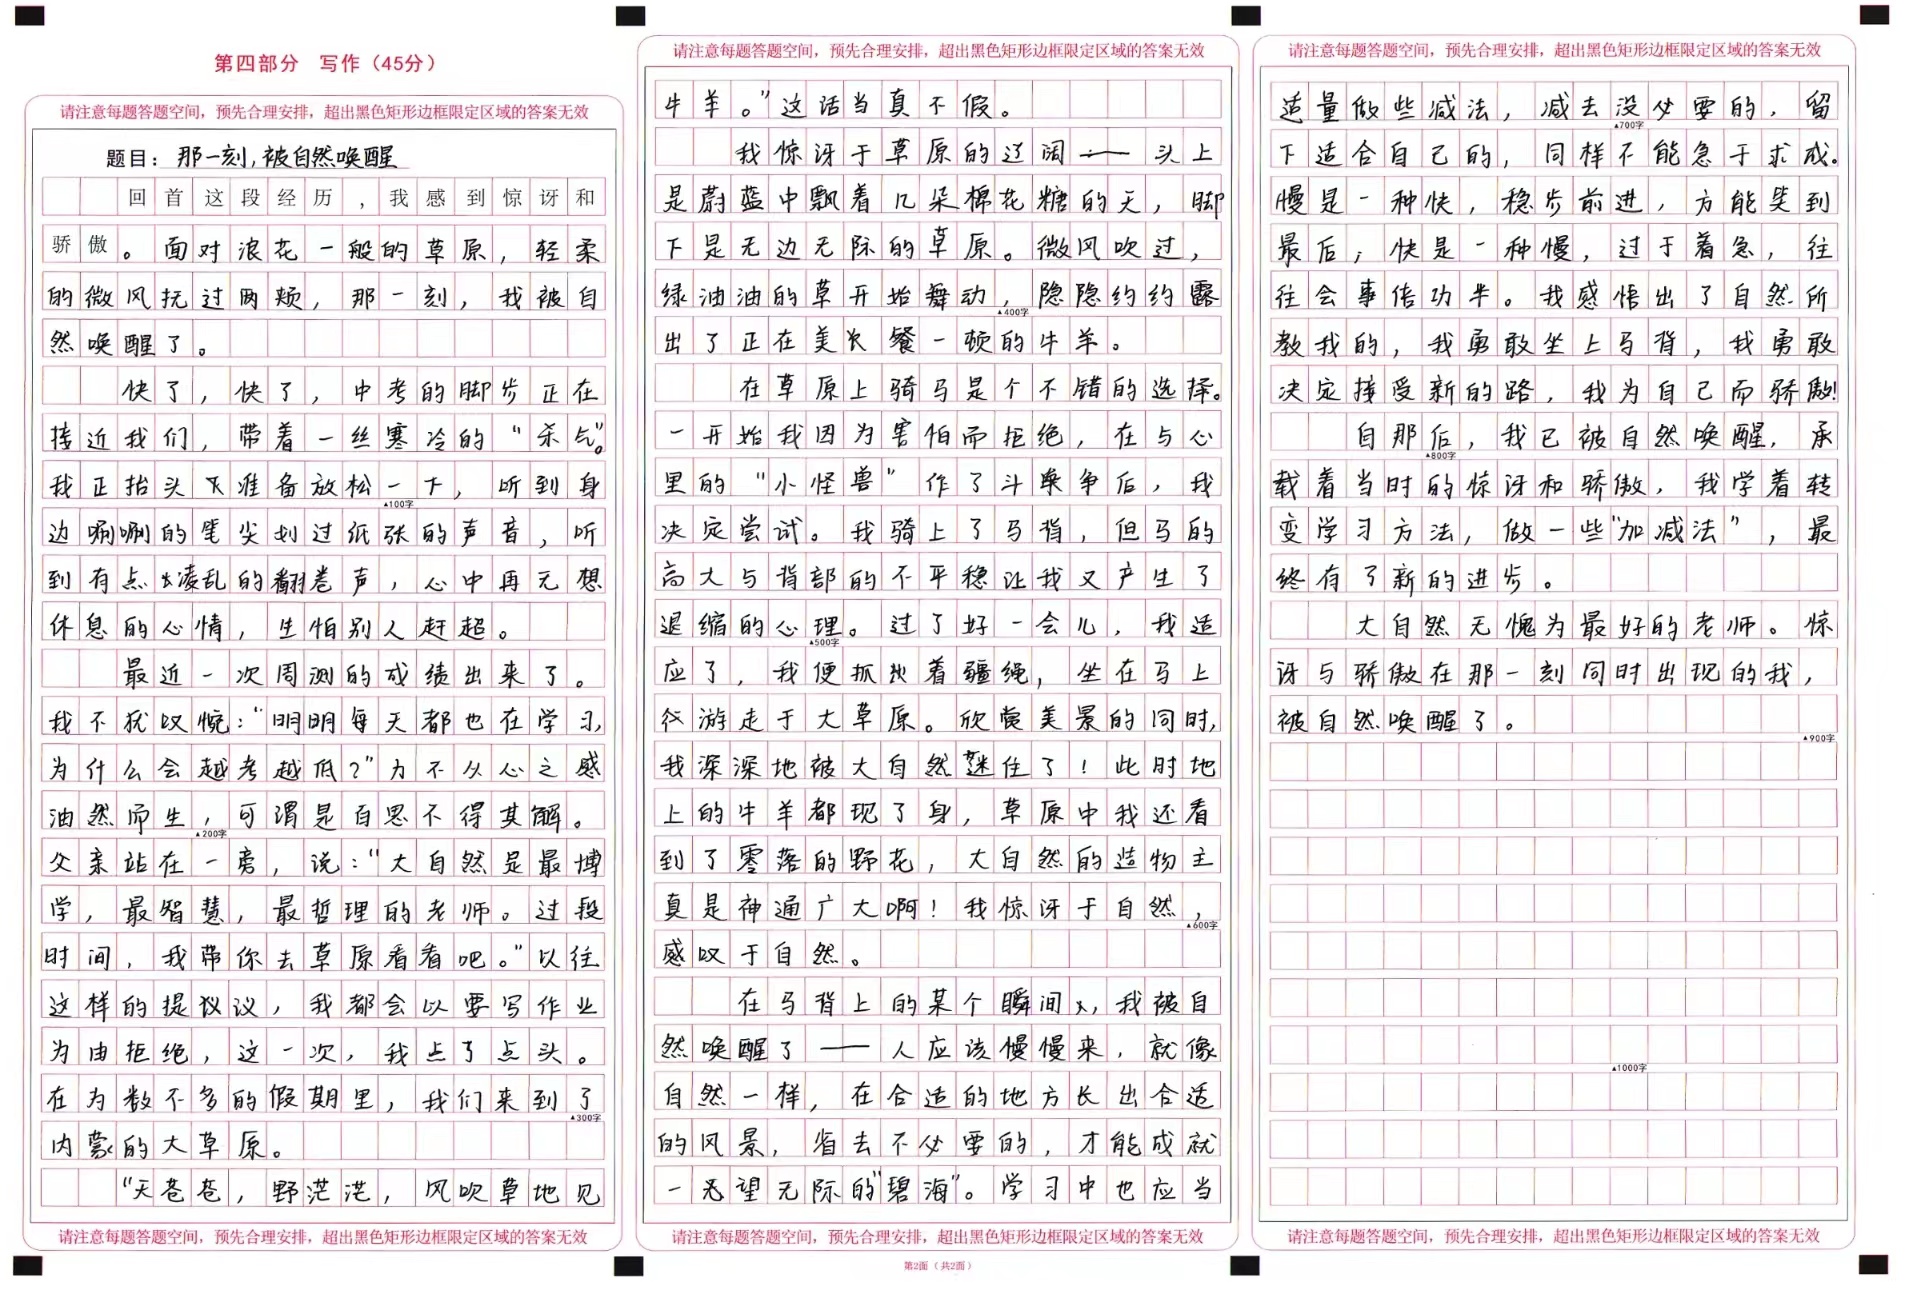 第四部分　写作（45分）
请注意每题答题空间，预先合理安排，超出黑色矩形边框限定区域的答案无效
题目：那一刻，被自然唤醒
回首这段经历，我感到惊讶和
骄傲。面对浪花一般的草原，轻柔
的微风抚过两颊，那一刻，我被自
然唤醒了。
快了，快了，中考的脚步正在
接近我们，带着一丝寒冷的“杀气”。
我正抬头准备放松一下，听到身
▲100字
边唰唰的笔尖划过纸张的声音，听
到有点凌乱的翻卷声，心中再无想
休息的心情，生怕别人赶超。
最近一次周测的成绩出来了。
我不犹叹惋：“明明每天都也在学习，
为什么会越考越低？”力不从心之感
油然而生，可谓是百思不得其解。
▲200字
父亲站在一旁，说：“大自然是最博
学，最智慧，最哲理的老师。过段
时间，我带你去草原看看吧。”以往
这样的提议，我都会以要写作业
为由拒绝，这一次，我点了点头。
在为数不多的假期里，我们来到了
▲300字
内蒙的大草原。
“天苍苍，野茫茫，风吹草地见
请注意每题答题空间，预先合理安排，超出黑色矩形边框限定区域的答案无效
请注意每题答题空间，预先合理安排，超出黑色矩形边框限定区域的答案无效
牛羊。”这话当真不假。
我惊讶于草原的辽阔——头上
是蔚蓝中飘着几朵棉花糖的天，脚
下是无边无际的草原。微风吹过，
绿油油的草开始舞动，隐隐约约露
▲400字
出了正在美餐一顿的牛羊。
在草原上骑马是个不错的选择。
一开始我因为害怕而拒绝，在与心
里的“小怪兽”作了斗争后，我
决定尝试。我骑上了马背，但马的
高大与背部的不平稳让我又产生了
退缩的心理。过了好一会儿，我适
▲500字
应了，我便抓着疆绳，坐在马上
游走于大草原。欣赏美景的同时，
我深深地被大自然迷住了！此时地
上的牛羊都现了身，草原中我还看
到了零落的野花，大自然的造物主
真是神通广大啊！我惊讶于自然，
▲600字
感叹于自然。
在马背上的某个瞬间，我被自
然唤醒了——人应该慢慢来，就像
自然一样，在合适的地方长出合适
的风景，省去不必要的，才能成就
一望无际的“碧海”。学习中也应当
请注意每题答题空间，预先合理安排，超出黑色矩形边框限定区域的答案无效
第2面（共2面）
请注意每题答题空间，预先合理安排，超出黑色矩形边框限定区域的答案无效
适量做些减法，减去没必要的，留
▲700字
下适合自己的，同样不能急于求成。
慢是一种快，稳步前进，方能笑到
最后；快是一种慢，过于着急，往
往会事倍功半。我感悟出了自然所
教我的，我勇敢坐上马背，我勇敢
决定接受新的路，我为自己而骄傲！
自那后，我已被自然唤醒，承
▲800字
载着当时的惊讶和骄傲，我学着转
变学习方法，做一些“加减法”，最
终有了新的进步。
大自然无愧为最好的老师。惊
讶与骄傲在那一刻同时出现的我，
被自然唤醒了。
▲900字
▲1000字
请注意每题答题空间，预先合理安排，超出黑色矩形边框限定区域的答案无效